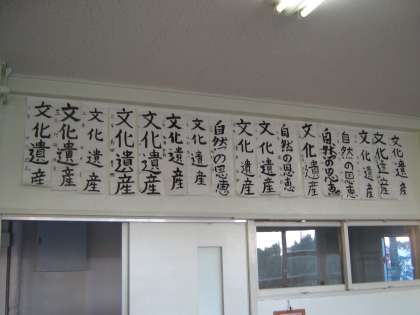 文化遺産
文化遺産
文化遺産
文化遺産
文化遺産
文化遺産
文化遺産
自然の恩恵
文化遺産
文化遺産
自然の恩恵
文化遺産
自然の恩恵
自然の恩恵
文化遺産
文化遺産
文化遺産